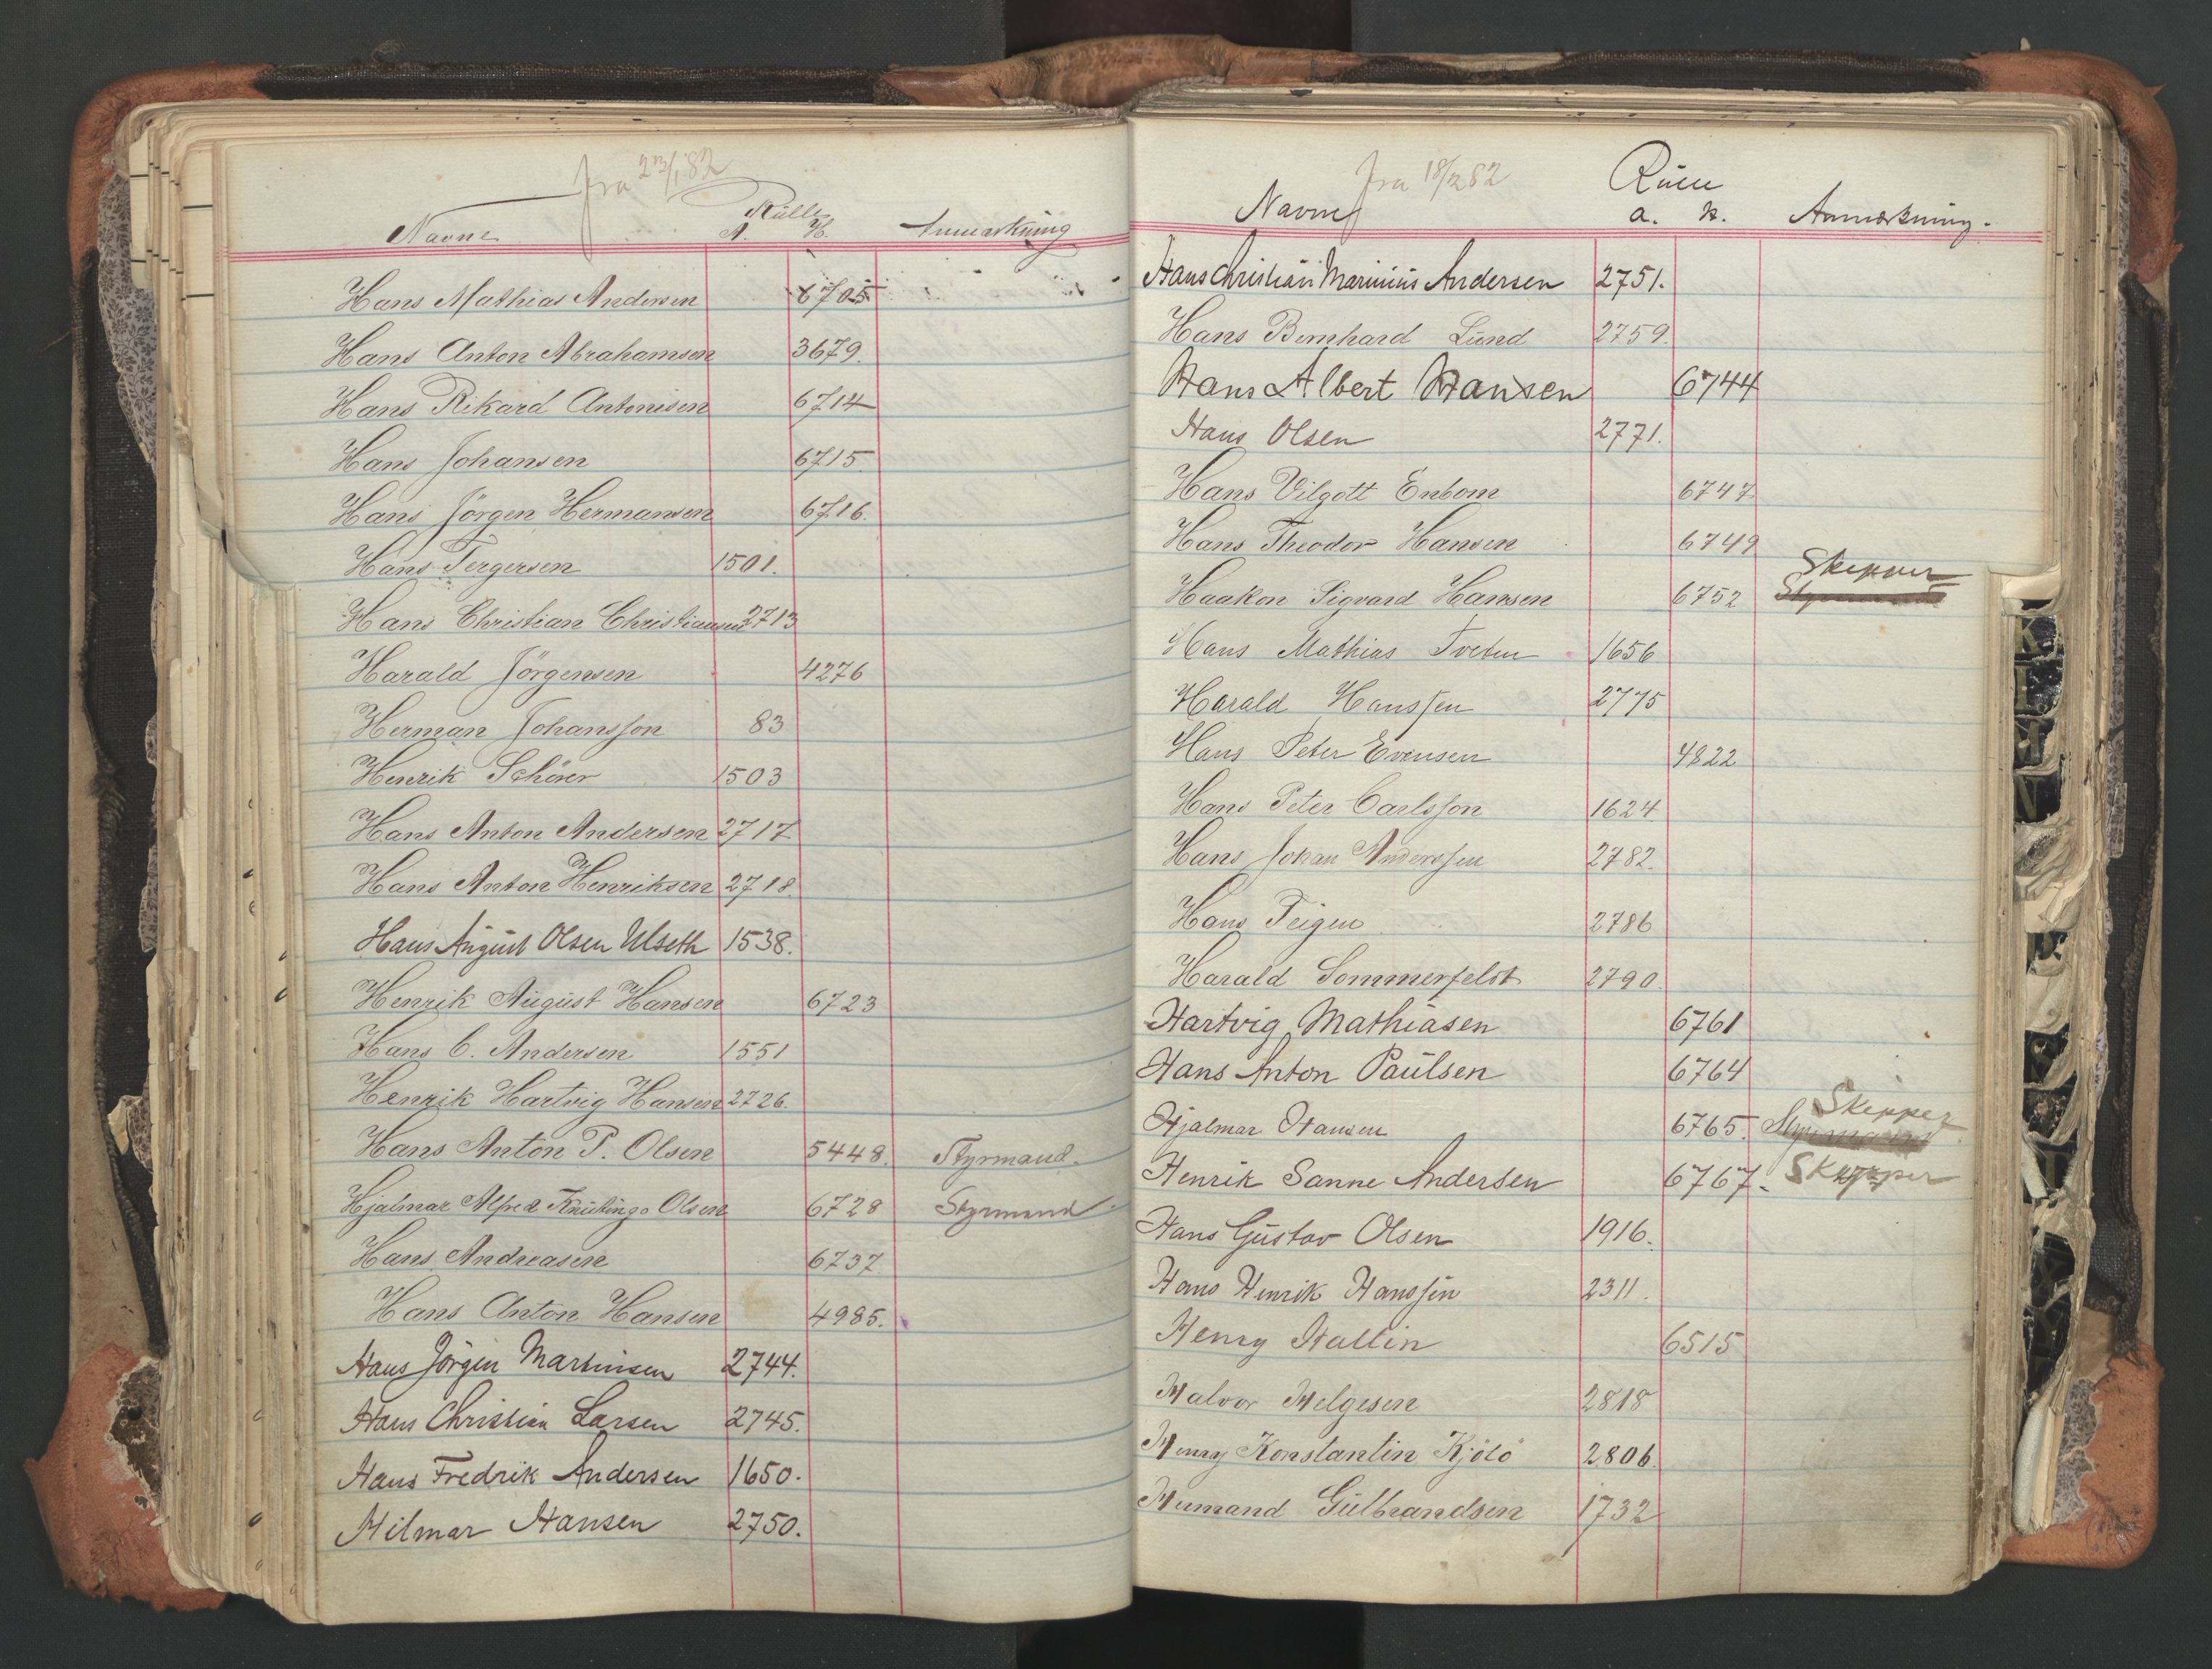 fra 23/1 82
Navne Rulle Anmærkning
A. H.
Hans Mathias Andersen 6705
Hans Anton Abrahamsen 3679.
Hans Rikard Antonisen 6714
Hans Johansen 6715.
Hans Jörgen Hermansen 6716.
Hans Tergersen 1501.
Hans Christian Christiansen 2713
Harald Jörgensen 4276
Herman Johansson 83
Henrik Schörer 1503
Hans Anton Andersen 2717
Hans Anton Henriksen 2718
Hans August Olsen Ulseth 1538.
Henrik August Hansen 6723
Hans C. Andersen 1551
Henrik Hartvig Hansen 2726.
Hans Anton P. Olsen 5448. Styrmand.
Hjalmar Alfred Knutinge Olsen 6728 Styrmand
Hans Andreasen 6737
Hans Anton Hansen 4985.
Hans Jörgen Martinsen 2744.
Hans Christian Larsen 2745.
Hans Fredrik Andersen 1650.
Hilmar Hansen 2750.
fra 18/2 82
Navne Rulle Anmærkning.
a. h.
Hans Christian Marinius Andersen 2751.
Hans Bernhard Lund 2759.
Hans Albert Hansen 6744
Hans Olsen 2771.
Hans Vilgott Enbom 6747
Hans Theodor Hansen 6749
Haakon Sigvard Hansen 6752 Skipper Styrmand
Hans Mathias Tveten 1656
Harald Hanssen 2775
Hans Peter Evensen 4822
Hans Peter Carlsson 1624
Hans Johan Anderssen 2782.
Hans Teigen 2786
Harald Sommerfeldt 2790.
Hartvig Mathiasen 6761
Hans Anton Paulsen 6764
Hjalmar Hansen 6765. Skipper Styrmand
Henrik Sanne Andersen 6767. Skipper
Hans Gustav Olsen 1916.
Hans Henrik Hanssen 2311.
Henry Hallin 6515
Halvor Helgesen 2818
Henry Konstantin Kjölö 2806.
Humand Gulbrandsen 1732